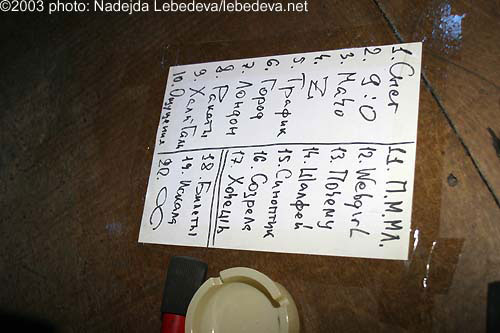 ©2003 photo: Nadejda Lebedeva/lebedeva.net
1. Снег
2. 9:0
3. Мачо
4. Z
5. Трафик
6. Город
7. Лондон
8. Ракеты
9. ХалиГали
10. Ощущения
11. П.М.М.Л.
12. Webgirl
13. Почему
14. Шалфей
15. Синоптик
16. Созрела
17. Хочешь
18. Билеты
19. Искала
20. ∞